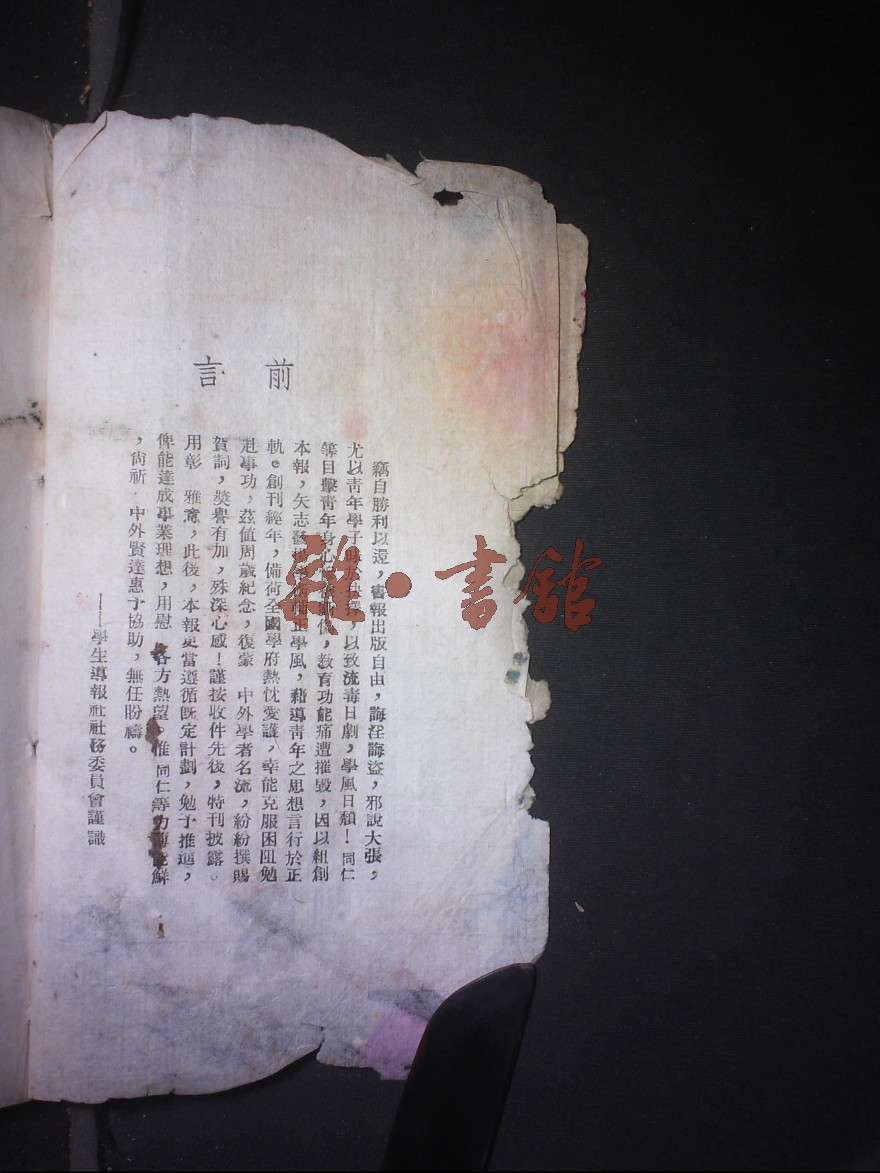 前言
竊自勝利以還，書報出版自由，誨淫誨盜，邪說大張，
尤以青年學子 抉擇，以致流毒日劇，學風日頹！同仁
等目擊青年身心 ，教育功能痛遭摧毀，因以組創
本報，矢志 正學風，藉導青年之思想言行於正
軌。創刊經年，備荷全國學府熱忱愛護，幸能克服困阻勉
赴事功，茲値周歲紀念，復蒙　中外學者名流，紛紛撰賜
賀詞，奬譽有加，殊深心感！謹按收件先後，特刊披露。
用彰　雅意，此後，本報更當遵循旣定計劃，勉予推進，
俾能達成學業理想，用慰　各方熱望。惟同仁等力 鮮
，尙祈　中外賢達惠予協助，無任盼禱。
——學生導報社社務委員會謹識
雜·書館